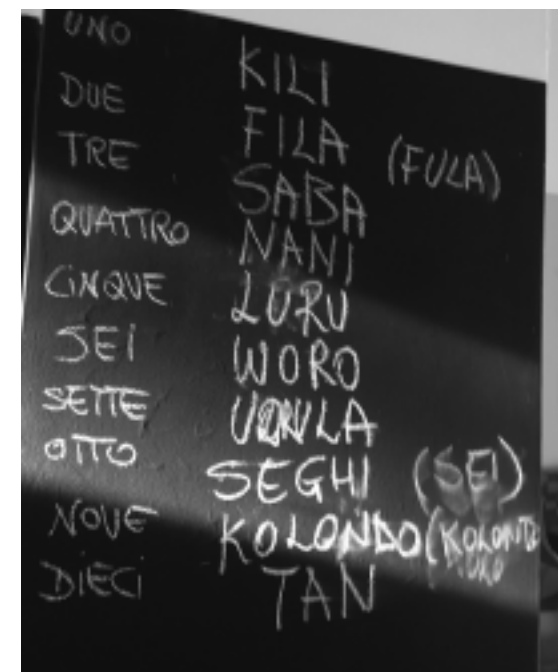 UNO KILI
DUE FILA (FULA)
TRE SABA
QUATTRO NANI
CINQUE LURU
SEI WORO
SETTE
OTTO SEGHI (SEI)
NOVE KOLONDO
DIECI TAN